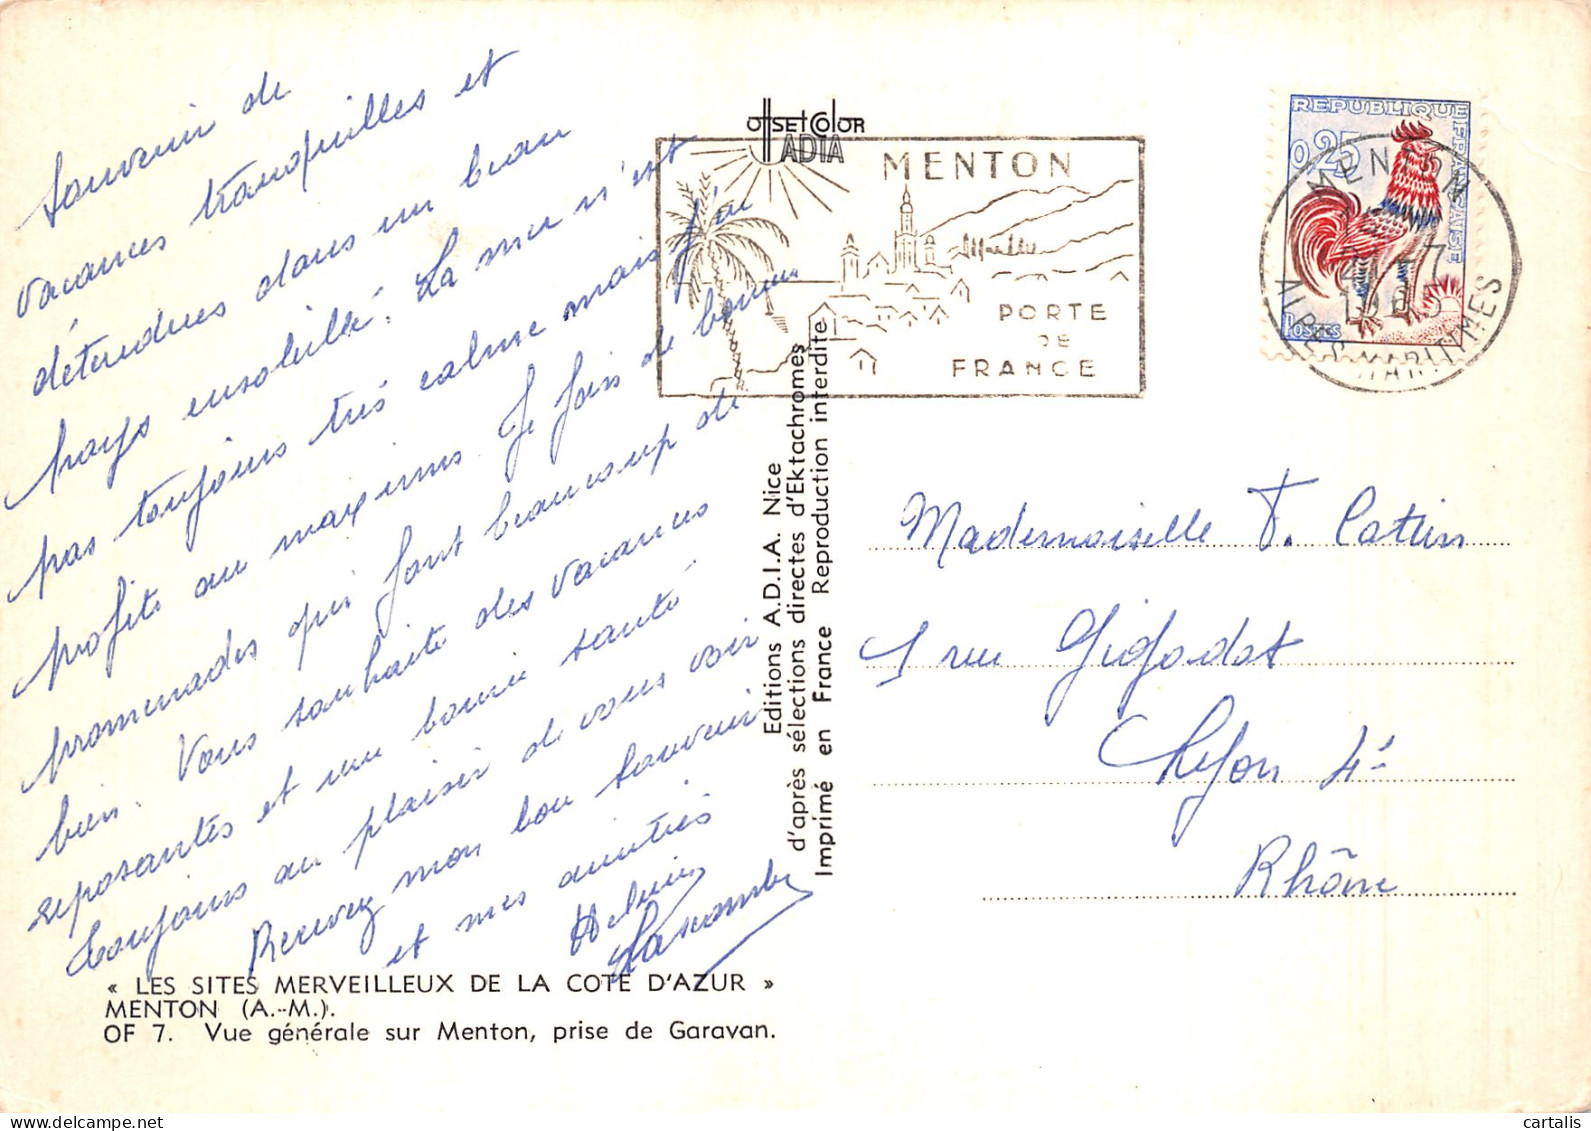 Souvenir de
vacances tranquilles et
détendues dans un beau
pays ensoleillé. La mer n'est
pas toujours très calme mais j'en
profite au maximum. Je fais de bonnes
promenades qui font beaucoup de
bien. Vous souhaite des vacances
reposantes et une bonne santé
Toujours au plaisir de vous voir
Recevez mon bon souvenir
et mes amitiés
« LES SITES MERVEILLEUX DE LA COTE D'AZUR »
MENTON (A.-M.).
OF 7. Vue générale sur Menton, prise de Garavan.
OffsetColor
ADIA
MENTON
PORTE
DE
FRANCE
Editions A.D.I.A. Nice
d'après sélections directes d'Ektachromes
Imprimé en France Reproduction interdite
REPUBLIQUE FRANÇAISE
0,25
Postes
MENTON
ALPES MARITIMES
Mademoiselle F. Catin
1 rue Gigodot
Lyon 4e
Rhône
delcampe.net
cartalis